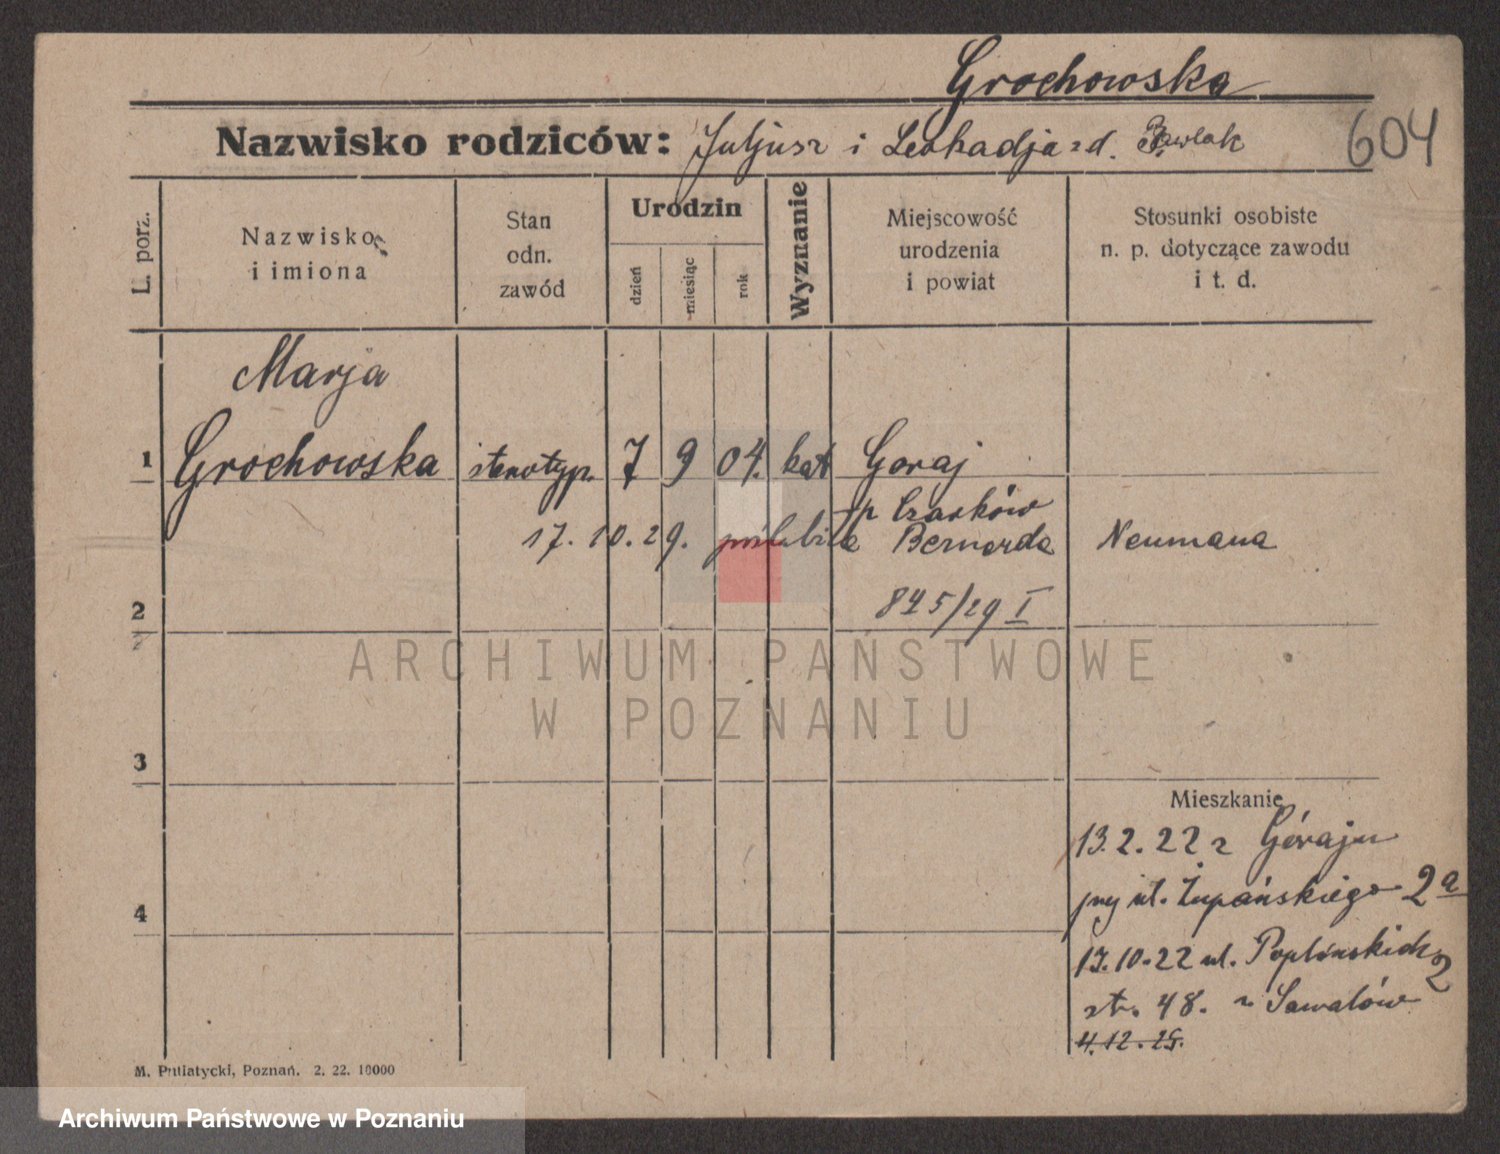 Grochowska
Nazwisko rodziców: Juljusz i Leokadja z d. Pawlak
604
L. porz.
Nazwisko i imiona
Stan odn. zawód
Urodzin
dzień
miesiąc
rok
Wyznanie
Miejscowość urodzenia i powiat
Stosunki osobiste n. p. dotyczące zawodu i t. d.
Marja
1 Grochowska stenotyp. 7 9 04. kat Goraj
p Czarków
17. 10. 29. poślubiła Bernarda Neumana
2
845/29 I
3
Mieszkanie
13. 2. 22 z Góraju
przy ul. Żupańskiego 2a
4
17. 10. 22 ul. Poplińskich 2
str. 48.
4. 12. 25.
M. Putiatycki, Poznań. 2. 22. 10000
ARCHIWUM PAŃSTWOWE
W POZNANIU
Archiwum Państwowe w Poznaniu